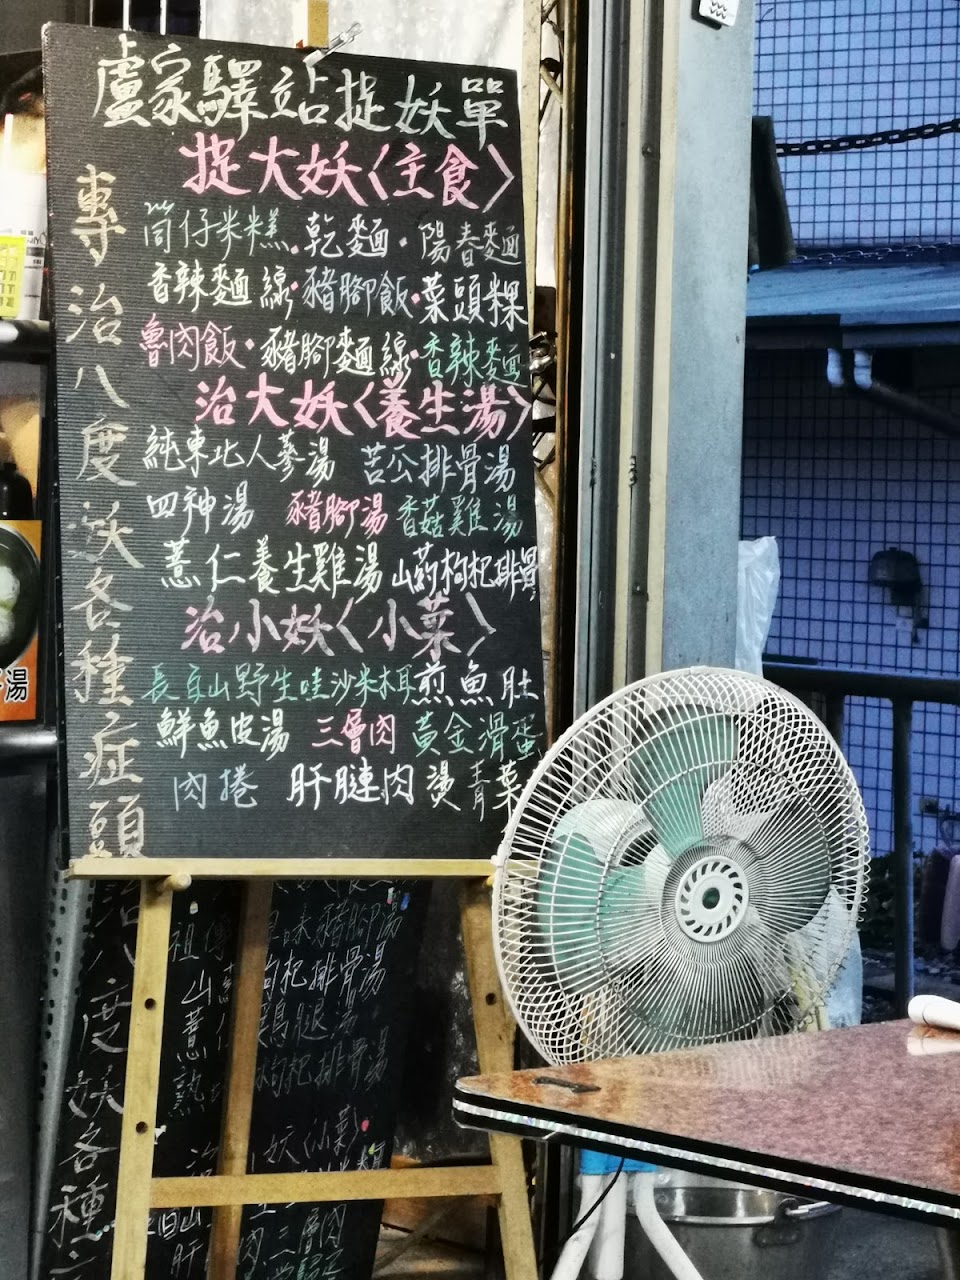 盧家驛站捉妖單
捉大妖〈主食〉
筒仔米糕·乾麵·陽春麵
香辣麵線·豬腳飯·菜頭粿
魯肉飯·豬腳麵線·香辣麵
治大妖〈養生湯〉
純東北人蔘湯 苦瓜排骨湯
四神湯 豬腳湯 香菇雞湯
薏仁養生雞湯 山药枸杞排骨
治小妖〈小菜〉
長白山野生哇沙米木耳 煎魚肚
鮮魚皮湯 三層肉 黃金滑蛋
肉捲 肝腱肉 燙青菜
專治八度妖各種症頭
湯
治八度妖各種
豬腳湯
枸杞排骨湯
腿湯
枸杞排骨湯
妖〈小菜〉
三層肉